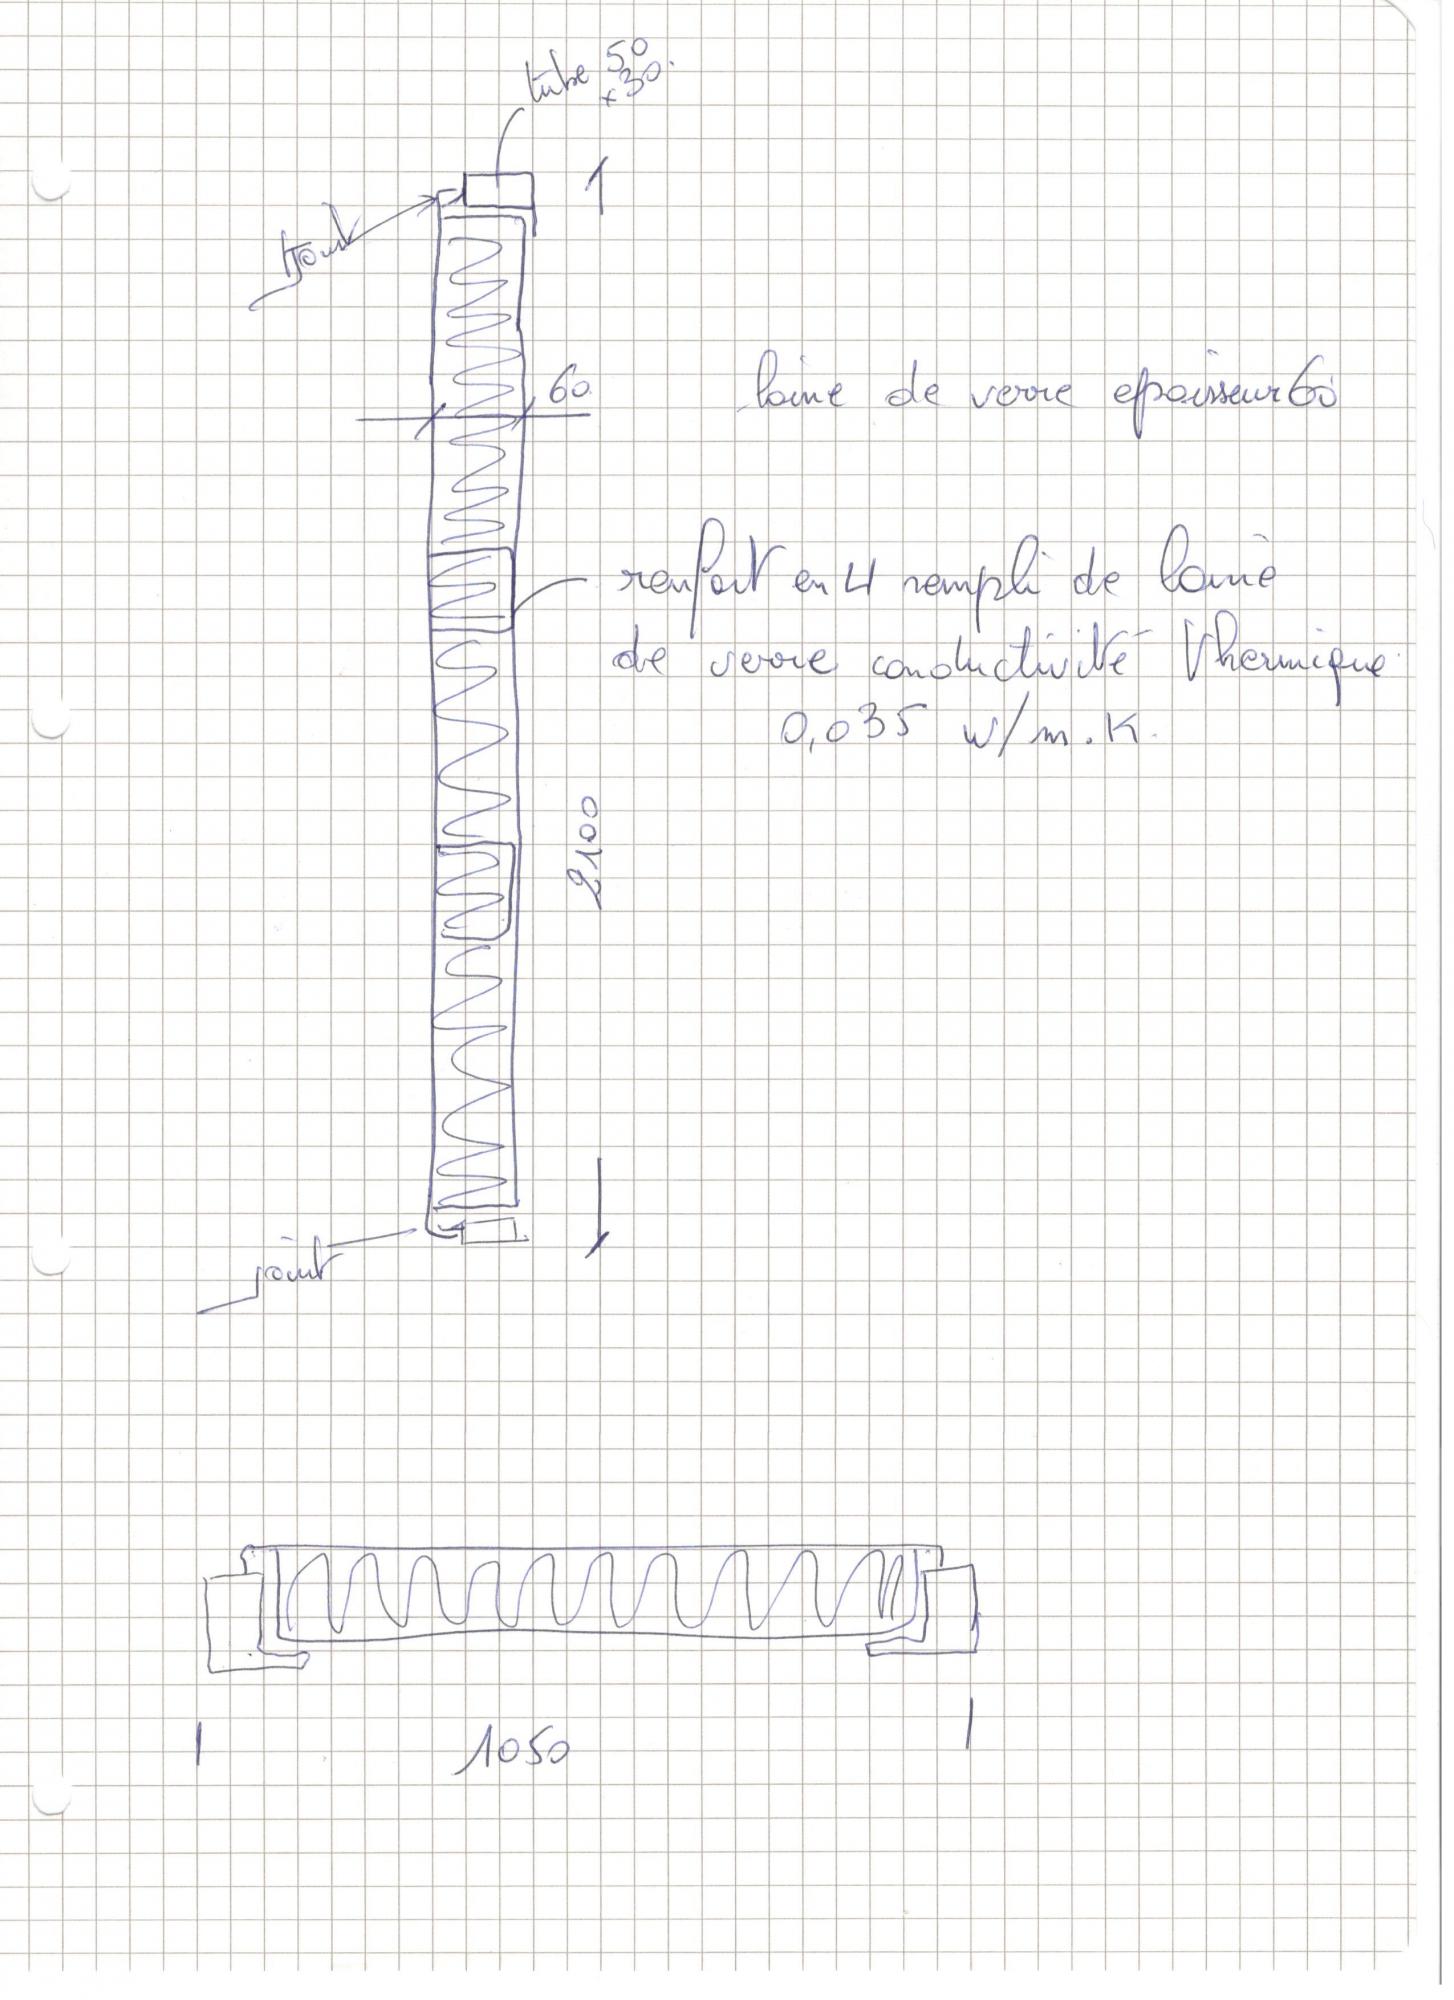 tube 50
x30.
1
joint
60
laine de verre epaisseur 60
renfort en U rempli de laine
de verre conductivité thermique
0,035 w/m.K.
2100
joint
1050